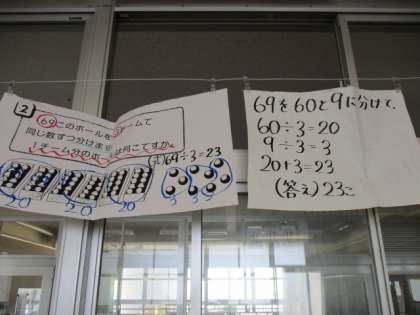 2
69このボールを3チームで
同じ数ずつ分けます。
1チーム分のボールは何こですか。
(式) 69÷3=23
20 20 20
3 3 3
69を60と9に分けて、
60÷3=20
9÷3=3
20+3=23
(答え) 23こ